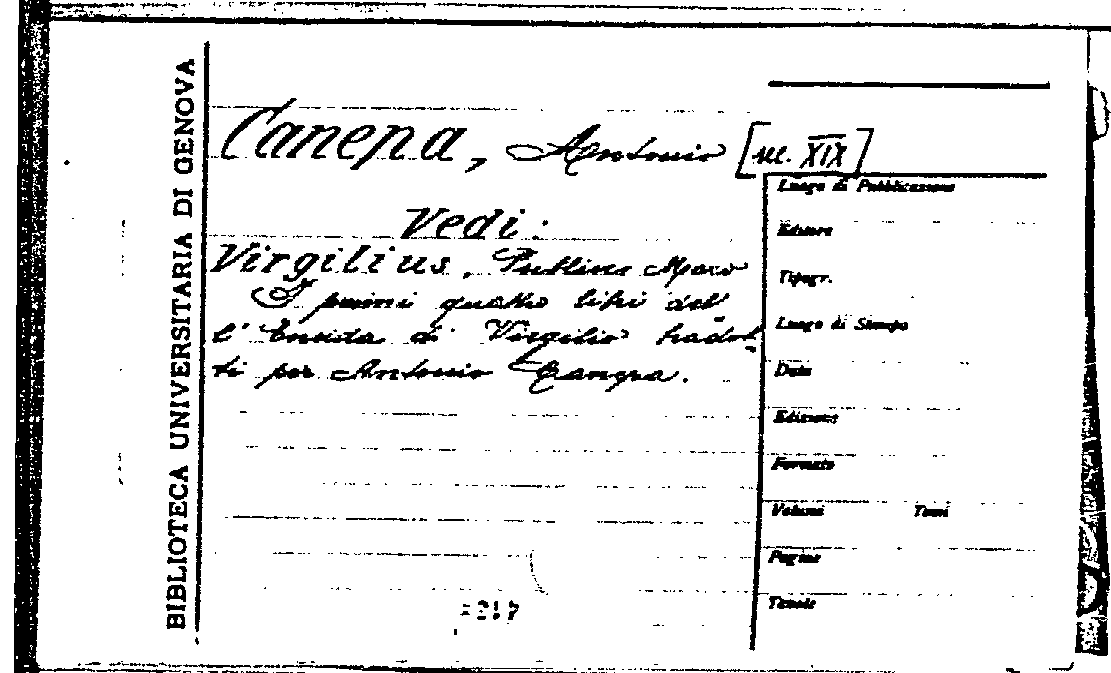 BIBLIOTECA UNIVERSITARIA DI GENOVA
Canepa, Antonio [sec. XIX]
Vedi:
Virgilius, Publius Maro
I primi quattro libri del
l'Eneida di Virgilio tradot
ti per Antonio Canepa.
Luogo di Pubblicazione
Editore
Tipogr.
Luogo di Stampa
Data
Edizione
Formato
Volumi Tomi
Pagine
Tavole